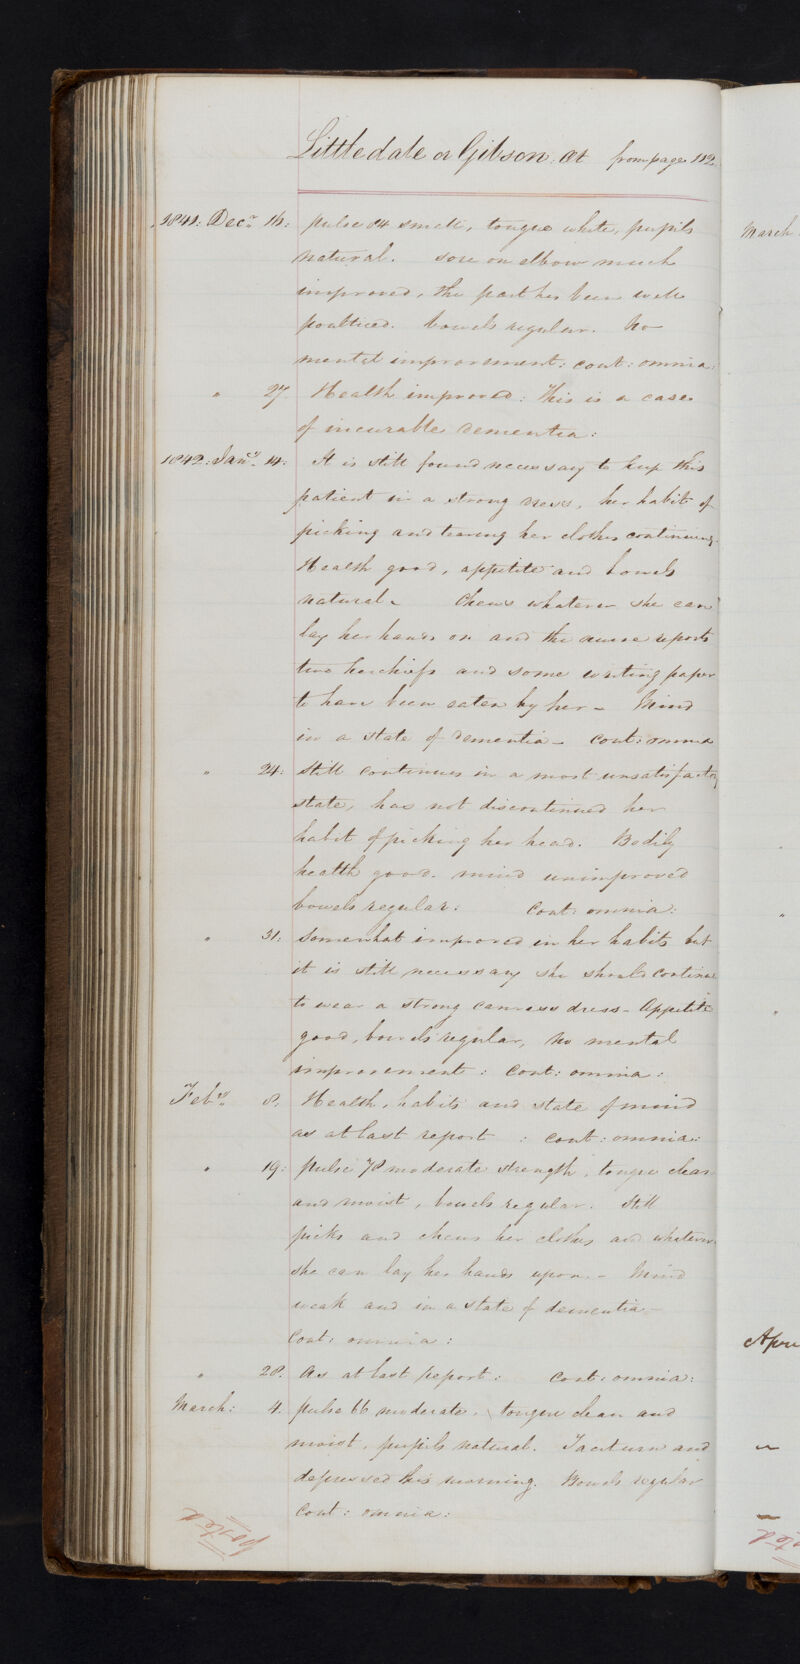 Littledale or Gibson. Ct from page 112
1841: Decr. 16: pulse 84 small, tongue white, pupils
natural. sore on elbow much
improved, the part has been well
poulticed. bowels regular. No
mental improvement: cont: omnia:
" 27. Health improved: This is a case
of incurable dementia:
1842: Jany. 14: It is still found necessary to keep this
patient in a strong dress, her habit of
picking and tearing her clothes continuing.
Health good, appetite and bowels
natural - Chews whatever she can
lay her hands on and the nurse reports
two kerchiefs and some writing paper
to have been eaten by her - Mind
in a state of dementia - cont: omnia
" 24: Still continues in a most unsatisfactory
state, has not discontinued her
habit of picking her head. Bodily
health good. mind unimproved
bowels regular: Cont: omnia:
" 31: Somewhat improved in her habits but
it is still necessary she should continue
to wear a strong canvass dress - Appetite
good, bowels regular, no mental
improvement: Cont: omnia:
Feby. 8. Health, habits and state of mind
as at last report : cont: omnia:
" 19: pulse 78 moderate strength, tongue clean
and moist, bowels regular. Still
picks and chews her clothes and whatever
she can lay her hands upon. - Mind
weak and in a state of dementia -
Cont: omnia:
" 28. As at last report: Cont: omnia:
March: 4. pulse 66 moderate, tongue clean and
moist, pupils natural. Taciturn and
depressed this morning. Bowels regular
Cont: omnia:
posted
March